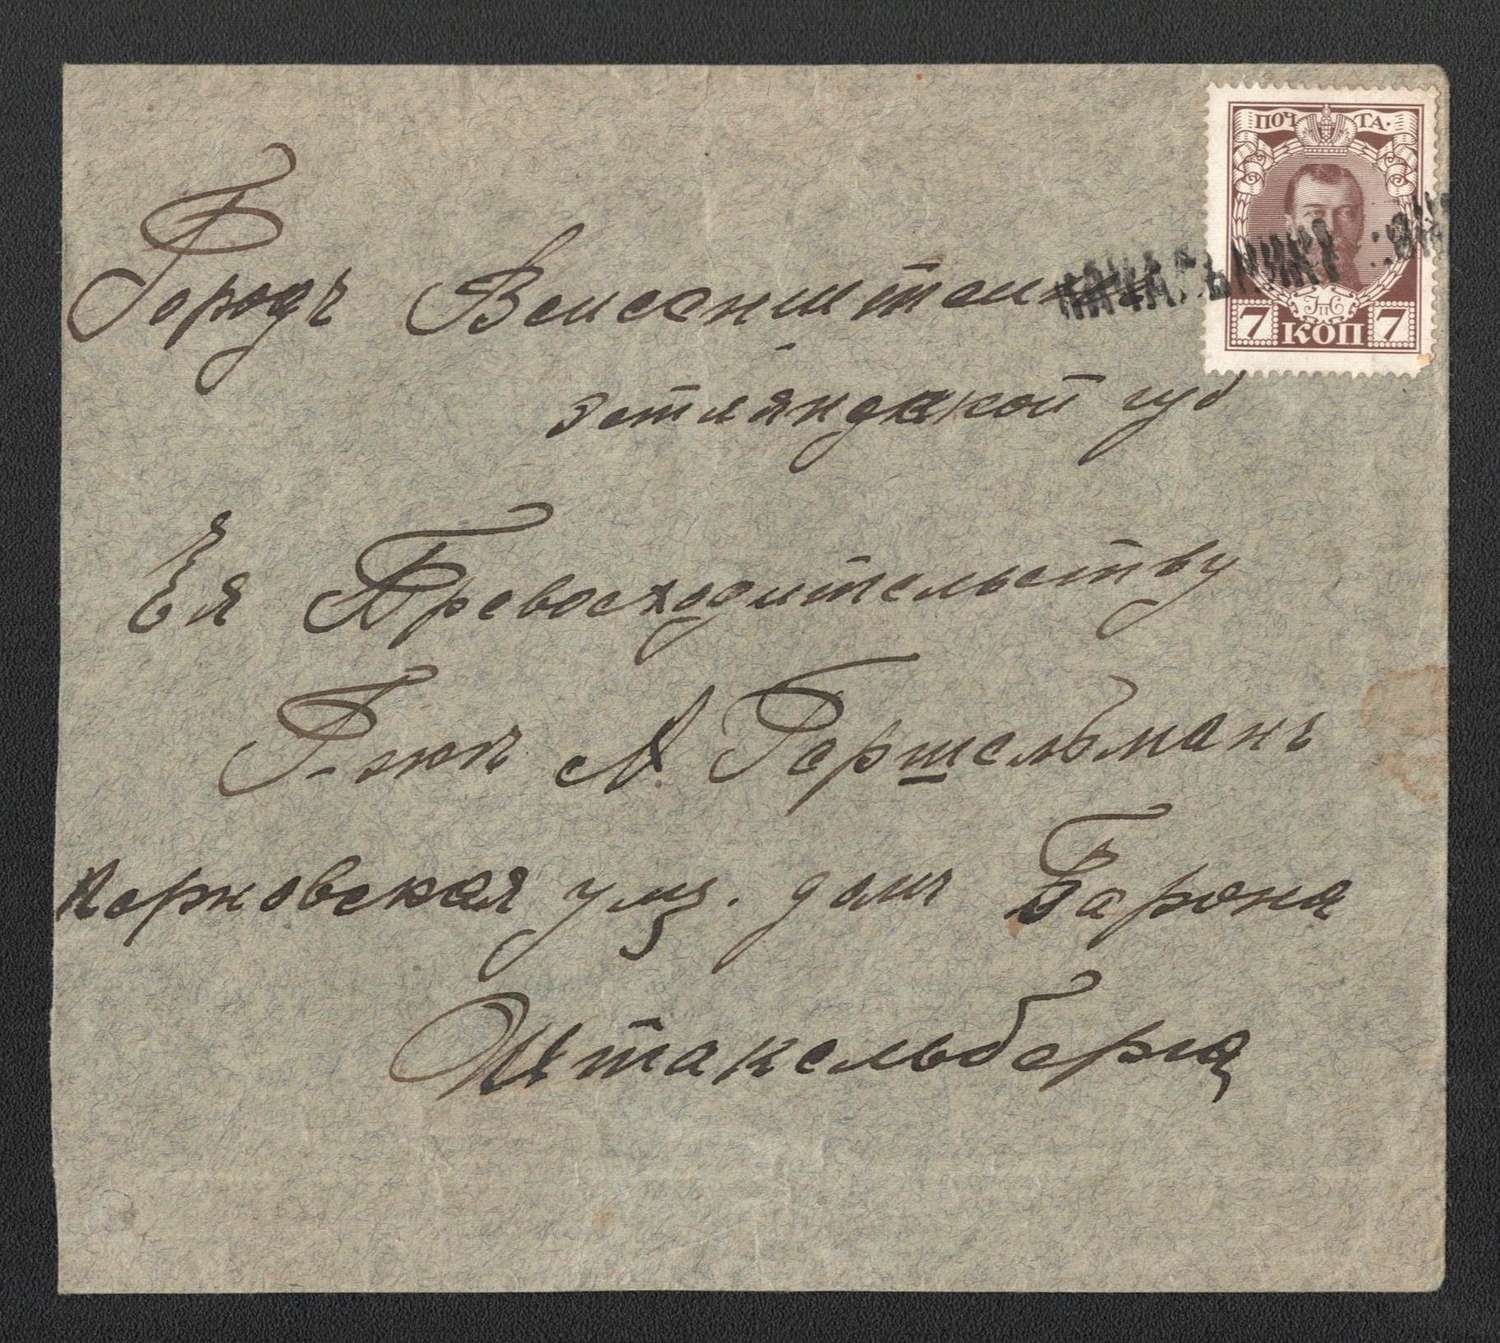 ПОЧТА.
7 КОП 7
Городъ Веисенштеинъ
Эстляндской губ
Ея Превосходительству
Г-жѣ А. Гершельманъ
Перновская улиц. домъ Барона
Штакельберга